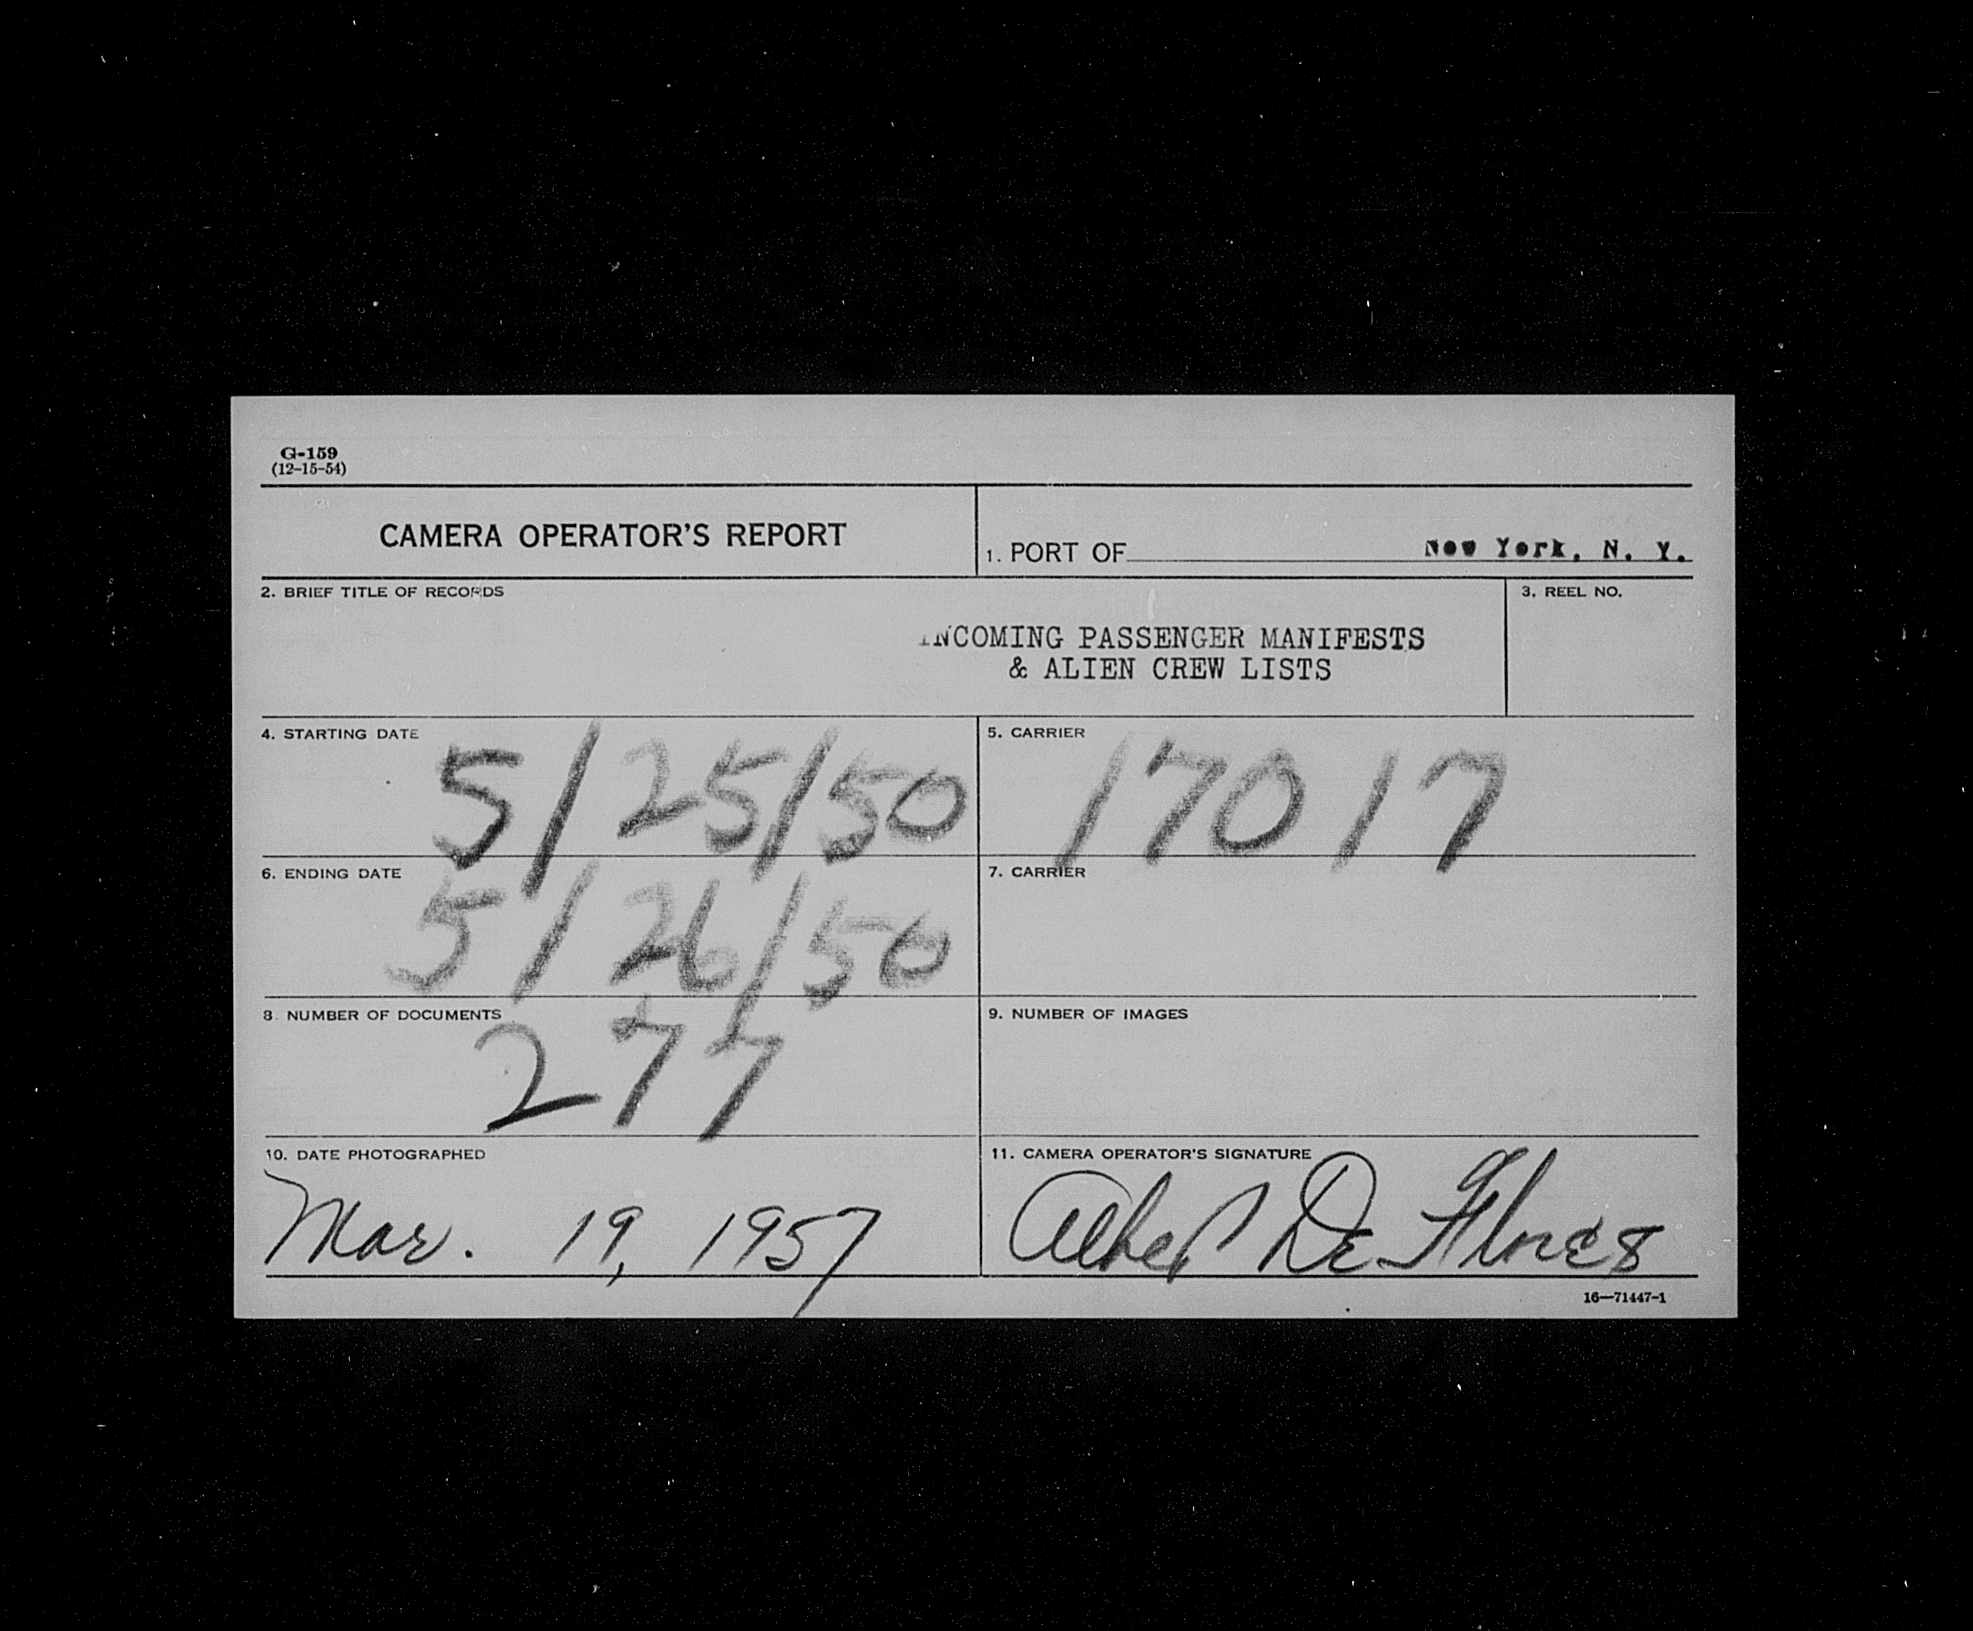 G-159
(12-15-54)
CAMERA OPERATOR'S REPORT
1. PORT OF New York, N. Y.
2. BRIEF TITLE OF RECORDS
3. REEL NO.
INCOMING PASSENGER MANIFESTS
& ALIEN CREW LISTS
4. STARTING DATE
5/25/50
5. CARRIER
17017
6. ENDING DATE
5/26/50
7. CARRIER
8. NUMBER OF DOCUMENTS
277
9. NUMBER OF IMAGES
10. DATE PHOTOGRAPHED
Mar. 19, 1957
11. CAMERA OPERATOR'S SIGNATURE
Albert De Flores
16—71447-1